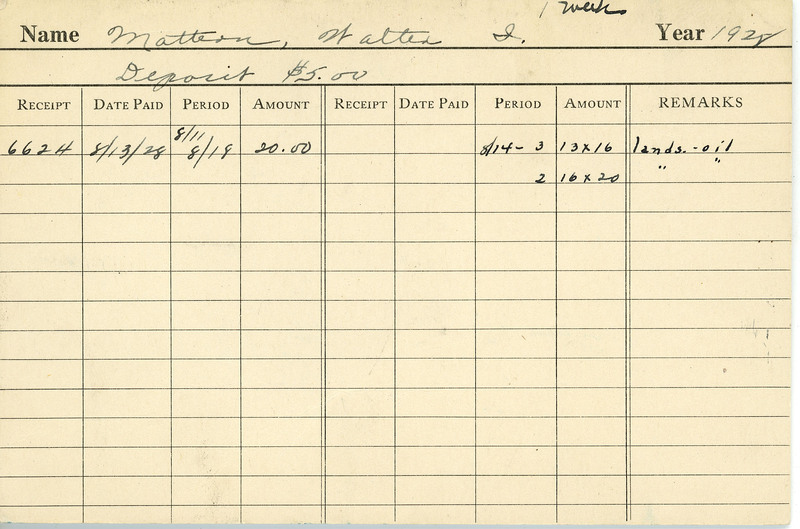 1 week
Name Mattern, Walter I. Year 1928
Deposit $5.00
RECEIPT DATE PAID PERIOD AMOUNT RECEIPT DATE PAID PERIOD AMOUNT REMARKS
8/11
6624 8/13/28 8/19 20.00 8/14 - 3 13 x 16 lands. - oil
2 16 x 20 " "